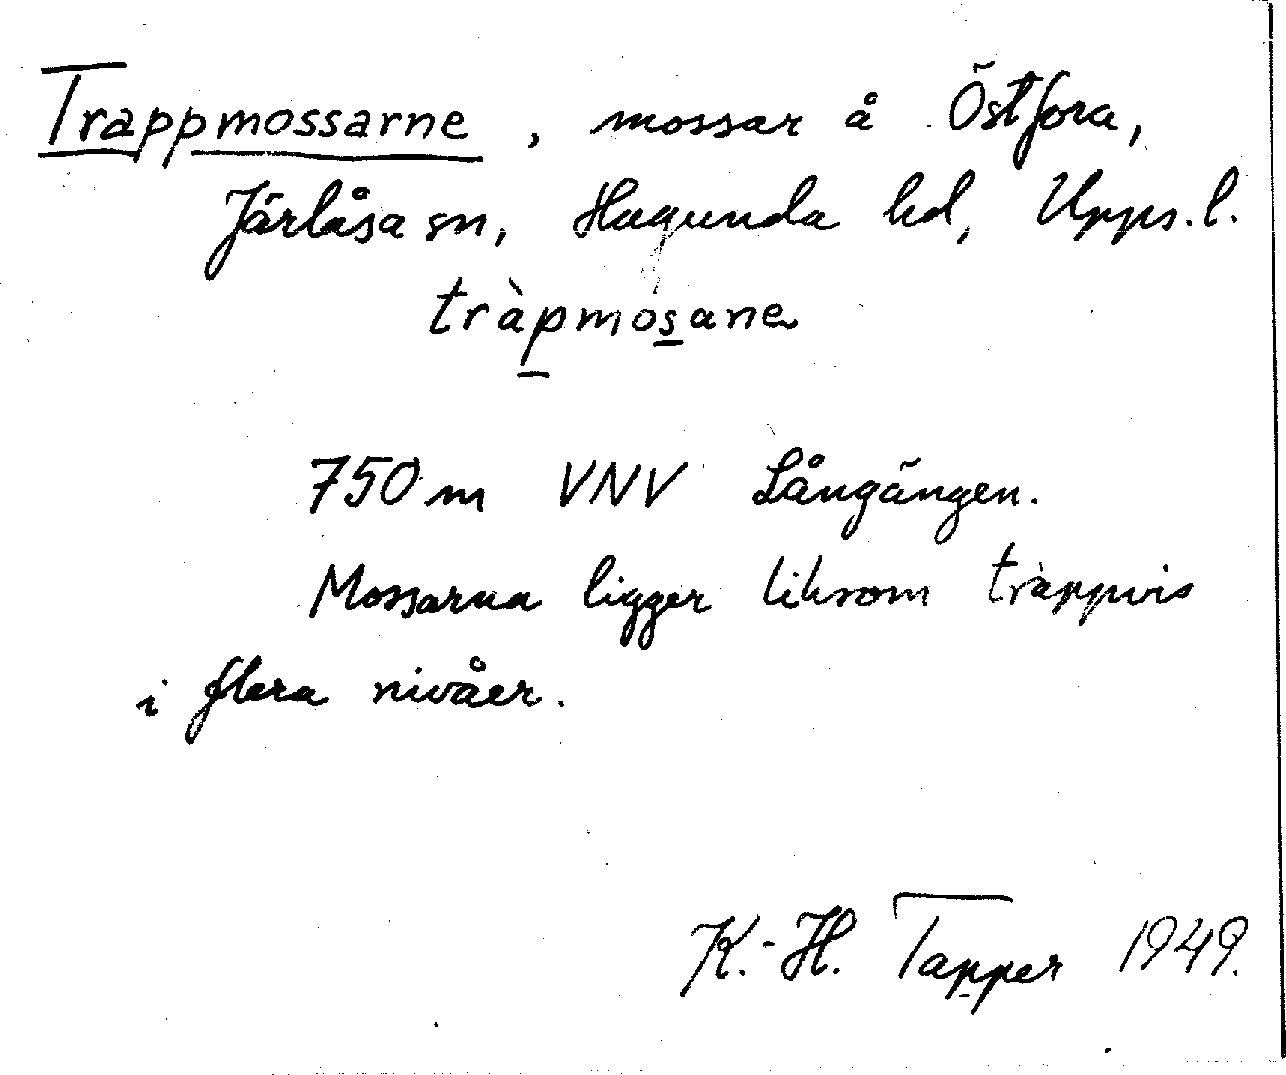 Trappmossarne, mossar å Östfora,
Järlåsa sn, Hagunda hd, Upps. l.
tràpmosane
750 m VNV Långängen.
Mossarna ligger liksom trappvis
i flera nivåer.
K.-H. Tapper 1949.